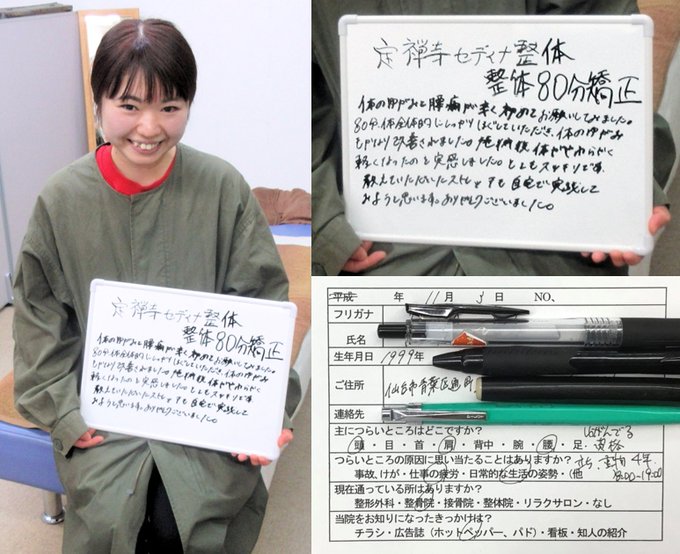 定禅寺セディナ整体
整体80分矯正
体のゆがみと腰痛が 初めてお願いしてみました。
80分、体全体的にしっかりほぐしていただき、体のゆがみ
も 改善されました。施術後 体がやわらかく
軽くなったのを実感しました。とてもスッキリです。
教えていただいたストレッチも自宅で実践して
みようと思います。ありがとうございました。
定禅寺セディナ整体
整体80分矯正
体のゆがみと腰痛が 初めてお願いしてみました。
80分、体全体的にしっかりほぐしていただき、体のゆがみ
も 改善されました。施術後 体がやわらかく
軽くなったのを実感しました。とてもスッキリです。
教えていただいたストレッチも自宅で実践して
みようと思います。ありがとうございました。
平成 年 11月 3日 NO、
フリガナ
氏名
生年月日 1999年
ご住所 仙台市青葉区
連絡先
主につらいところはどこですか？
頭・目・首・肩・背中・腕・腰・足・
つらいところの原因に思い当たることはありますか？ 4年
事故、けが・仕事の疲労・日常的な生活の姿勢・(他 8:00〜19:00
現在通っている所はありますか？
整形外科・整骨院・接骨院・整体院・リラクサロン・なし
当院をお知りになったきっかけは？
チラシ・広告誌(ホットペッパー、パド)・看板・知人の紹介